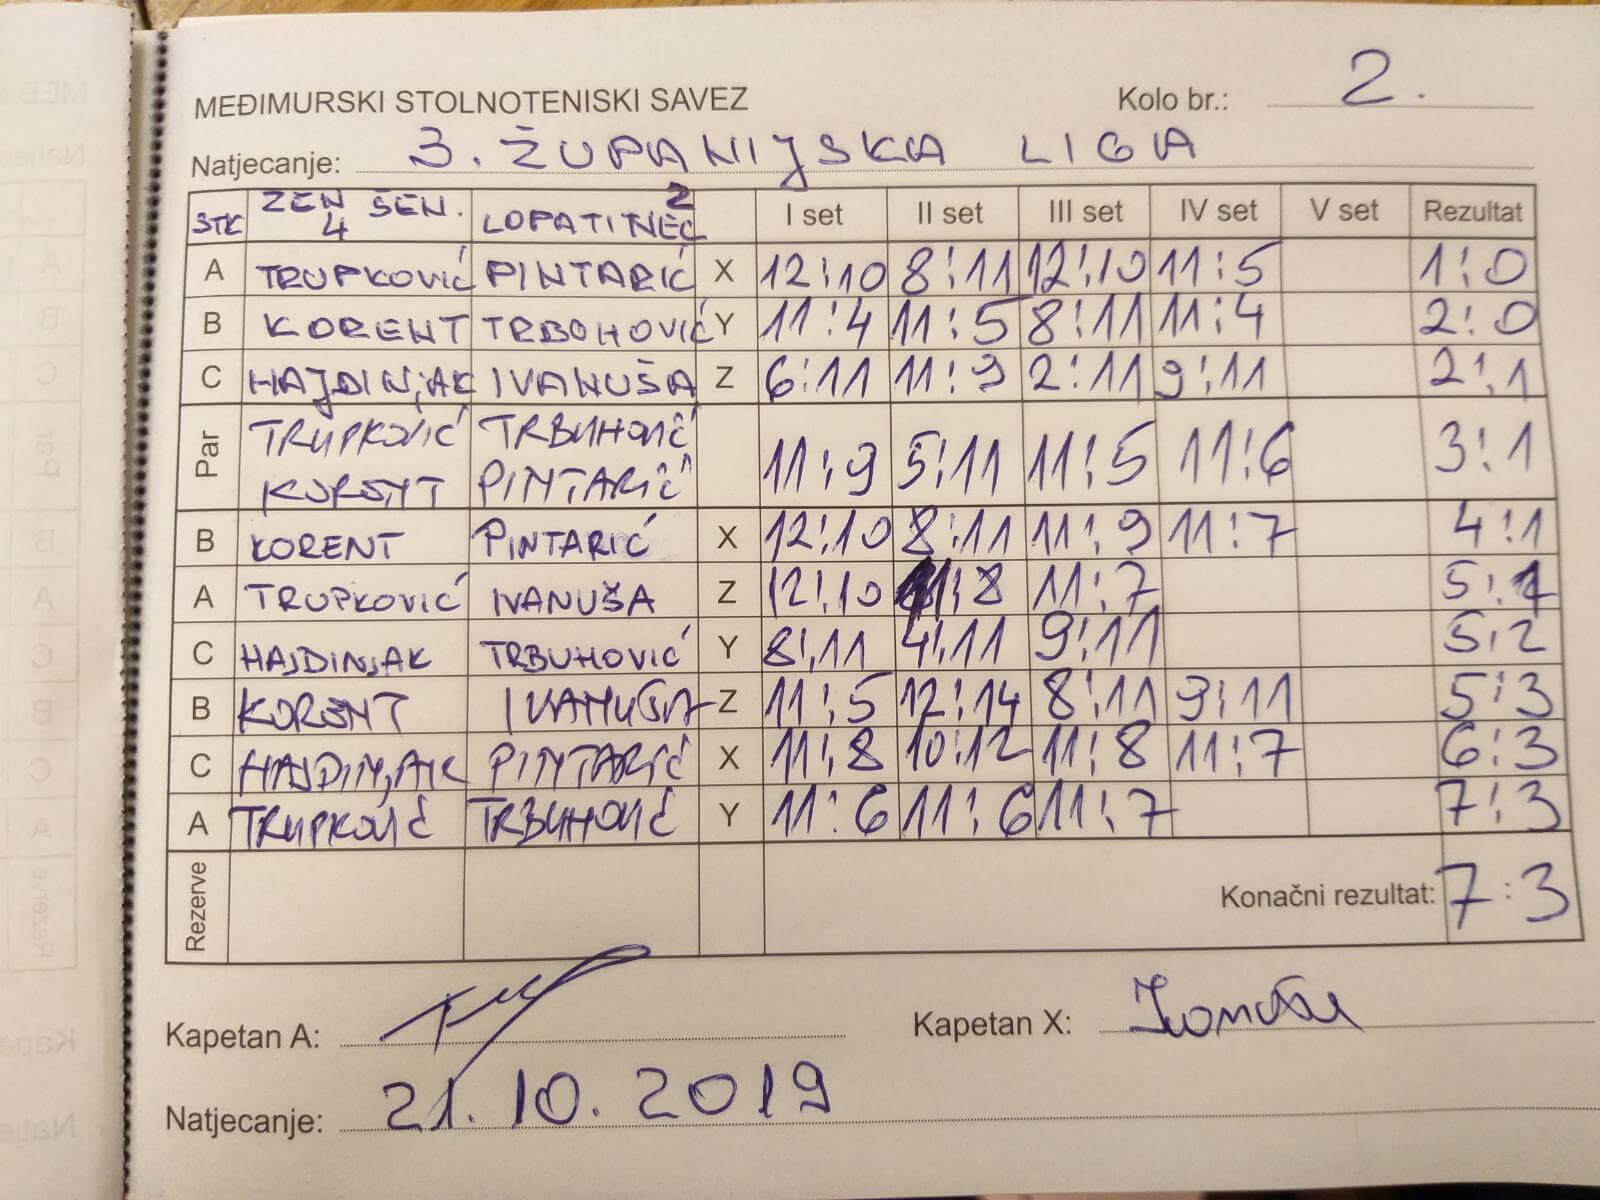 MEĐIMURSKI STOLNOTENISKI SAVEZ Kolo br.: 2.
Natjecanje: 3. ŽUPANIJSKA LIGA
STK ZEN ŠEN. 4 LOPATINEC 2 I set II set III set IV set V set Rezultat
A TRUPKOVIĆ PINTARIĆ X 12:10 8:11 12:10 11:5 1:0
B KORENT TRBOHOVIĆ Y 11:4 11:5 8:11 11:4 2:0
C HAJDINJAK IVANUŠA Z 6:11 11:9 2:11 9:11 2:1
Par TRUPKOVIĆ TRBUHOVIĆ
KORENT PINTARIĆ 11:9 5:11 11:5 11:6 3:1
B KORENT PINTARIĆ X 12:10 8:11 11:9 11:7 4:1
A TRUPKOVIĆ IVANUŠA Z 12:10 11:8 11:7 5:1
C HAJDINJAK TRBUHOVIĆ Y 8:11 4:11 9:11 5:2
B KORENT IVANUŠA Z 11:5 12:14 8:11 9:11 5:3
C HAJDINJAK PINTARIĆ X 11:8 10:12 11:8 11:7 6:3
A TRUPKOVIĆ TRBUHOVIĆ Y 11:6 11:6 11:7 7:3
Rezerve Konačni rezultat: 7:3
Kapetan A: Kapetan X:
Natjecanje: 21.10.2019